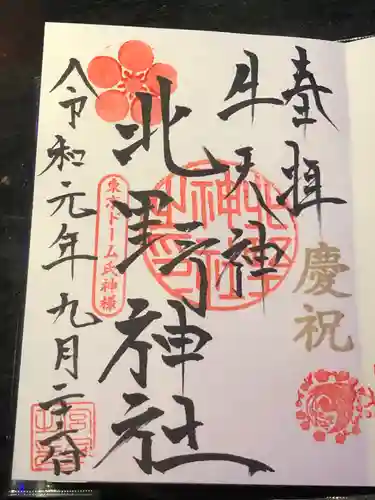 奉拝
慶祝
牛天神
北野神社
東京ドーム氏神様
令和元年九月二十八日